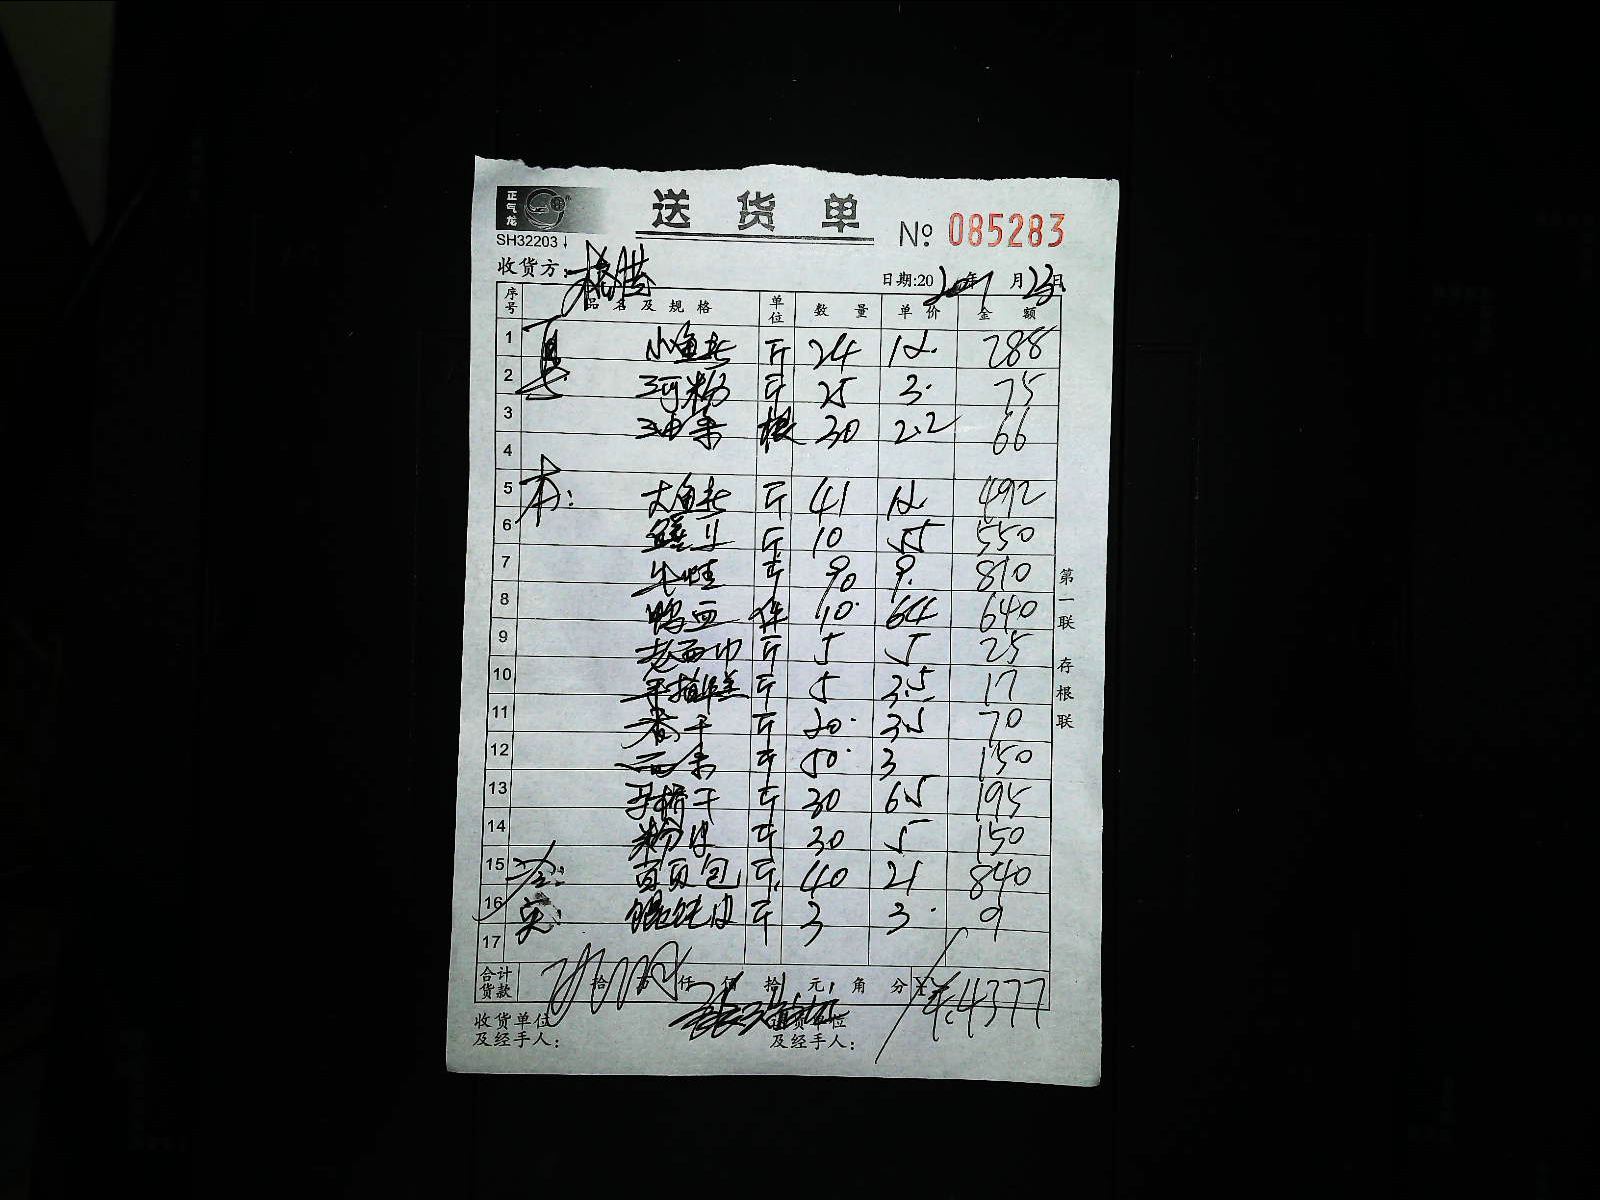 正气龙
送货单
№ 085283
SH32203
收货方:
日期:2020年7月23日
序号 品名及规格 单位 数量 单价 金额
1 小鱼 斤 24 12. 288
2 河粉 斤 25 3. 75
3 油条 根 30 2.2 66
4
5 本: 大鱼 斤 41 12. 492
6 斤 10 55 550
7 斤 90 9. 810
8 鸭血 件 10 64 640
9 老面 斤 5 5 25
10 斤 5 3.5 17
11 香干 斤 20 3.5 70
12 面条 斤 50 3 150
13 干 斤 30 6.5 195
14 粉皮 斤 30 5 150
15 百页包 斤 40 21 840
16 馄饨皮 斤 3 3. 9
17
合计货款 拾 万 仟 佰 拾 元 角 分 ¥: 4377
收货单位及经手人:
送货单位及经手人:
第一联 存根联